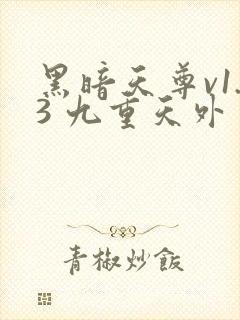 黑暗天尊v1.
3 九重天外
青椒炒飯